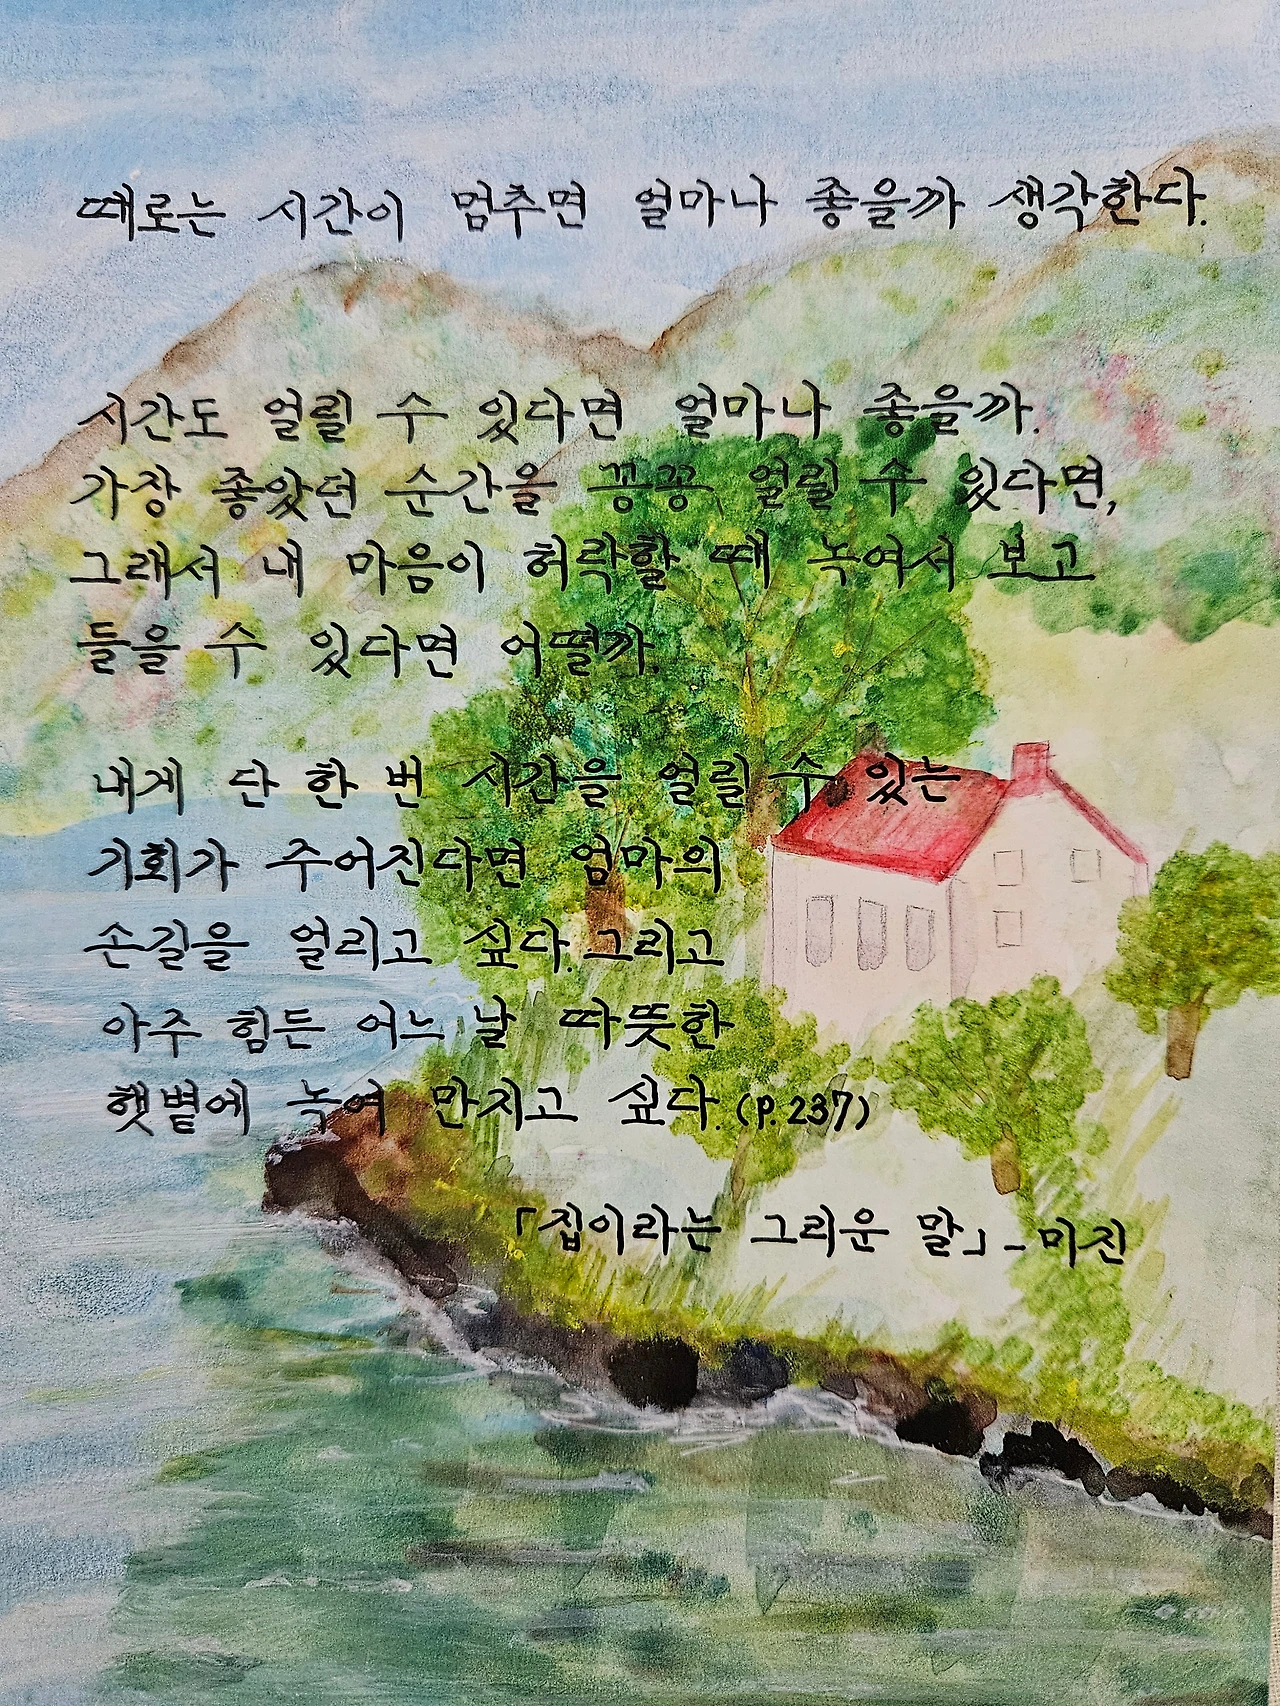 때로는 시간이 멈추면 얼마나 좋을까 생각한다.
시간도 얼릴 수 있다면 얼마나 좋을까.
가장 좋았던 순간을 꽁꽁 얼릴 수 있다면,
그래서 내 마음이 허락할 때 녹여서 보고
들을 수 있다면 어떨까.
내게 단 한 번 시간을 얼릴 수 있는
기회가 주어진다면 엄마의
손길을 얼리고 싶다. 그리고
아주 힘든 어느 날 따뜻한
햇볕에 녹여 만지고 싶다. (P.237)
「집이라는 그리운 말」- 미진